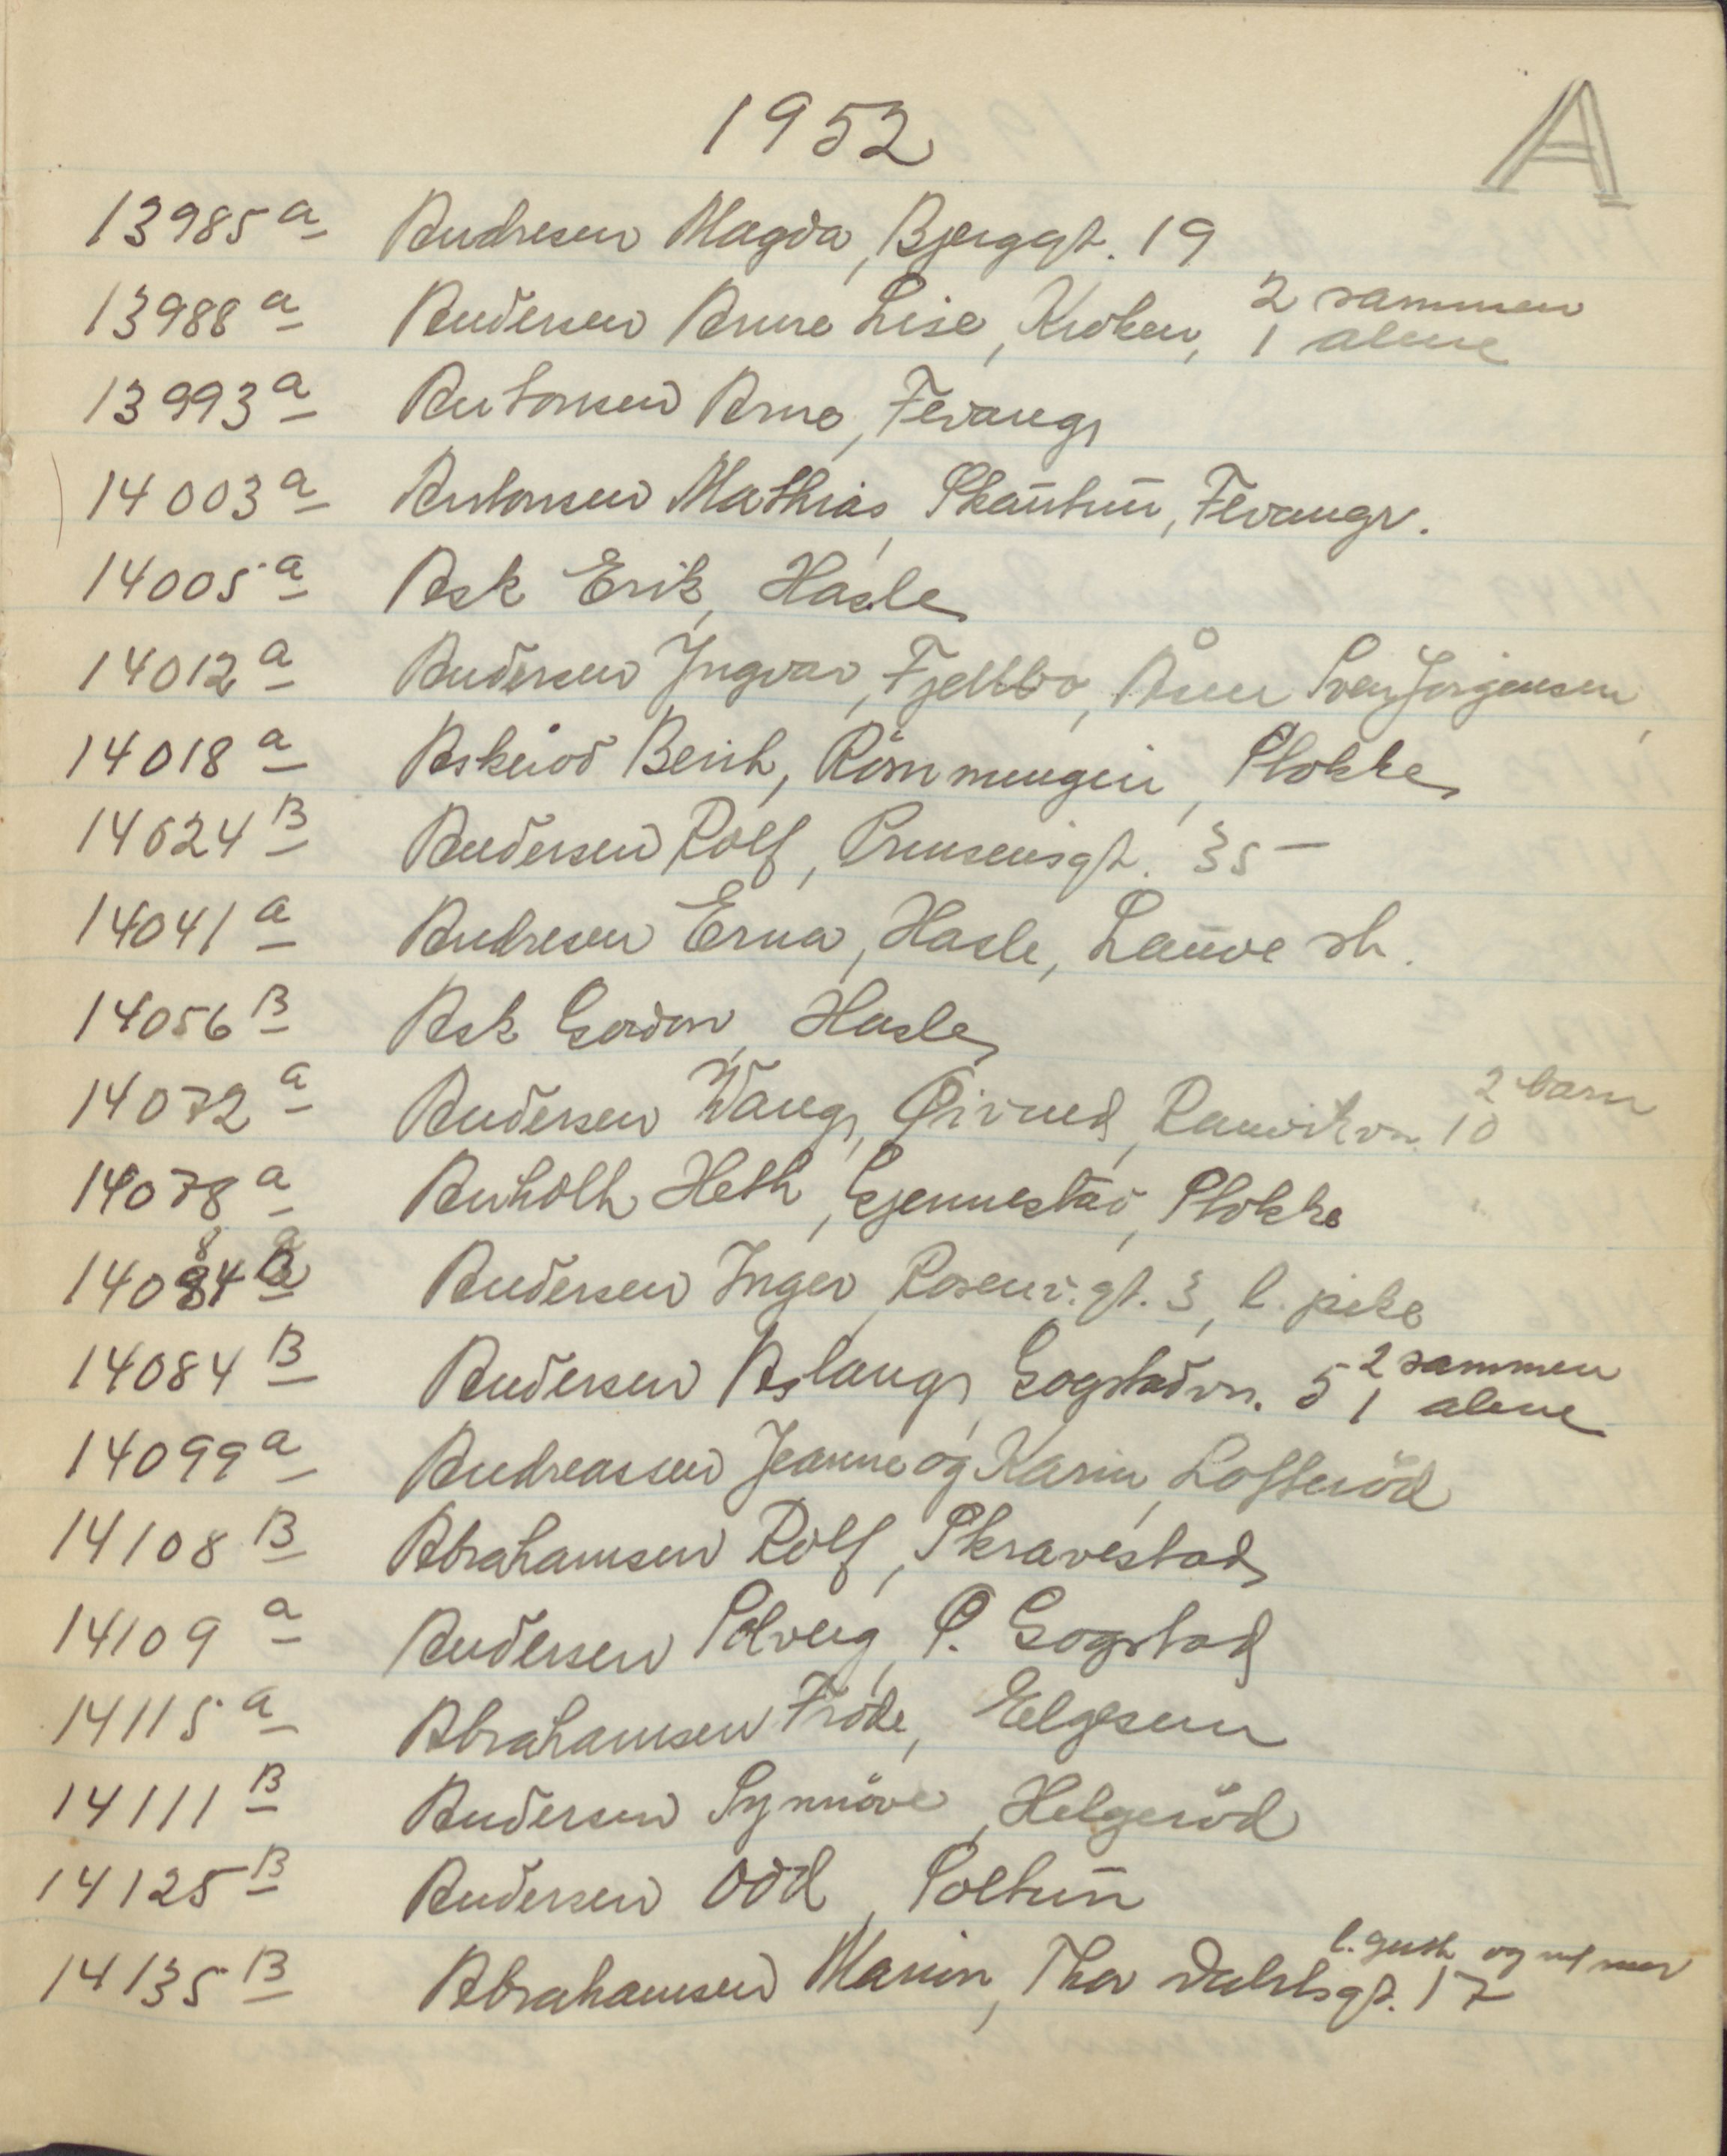 1952
A
13985 a Andresen Magda, Bjerggt. 19
13988 a Andersen Anne Lise, Kroken, 2 sammen
1 alene
13993 a Antonsen Arne, Flvaags
14003 a Antonsen Mathias, Skautun, Flvangr.
14005 a Ask Erik, Hasle
14012 a Andersen Ingvar, Fjellbo, Åsen Sven Jørgensen,
14018 a Askerød Berit, Rømmingen, Stokke
14024 B Andersen Rolf, Prinsensgt. 35 –
14041 a Andresen Erna, Hasle, Lauve st.
14056 B Ask Gordon, Hasle
2 barn
14072 a Andersen Wang, Øivind, Ranvikvn. 10
14078 a Anholt Heth, Gjennestad, Stokke
14084 a Andersen Inger, Rosenv.gt. 3, l. pike
14084 B Andersen Aslaug, Gogstadvn. 5 2 sammen
1 alene
14099 a Andreassen Jeanne og Karin, Lofterød
14108 B Abrahamsen Rolf, Skravestad
14109 a Andersen Solveig, Ø. Gogstad
14115 a Abrahamsen Frode, Elgesem
14111 B Andersen Synnøve, Helgerød
14125 B Andersen Odd, Soltun
l. gutt og mor
14135 B Abrahamsen Marion, Thor Dahlsgt. 17